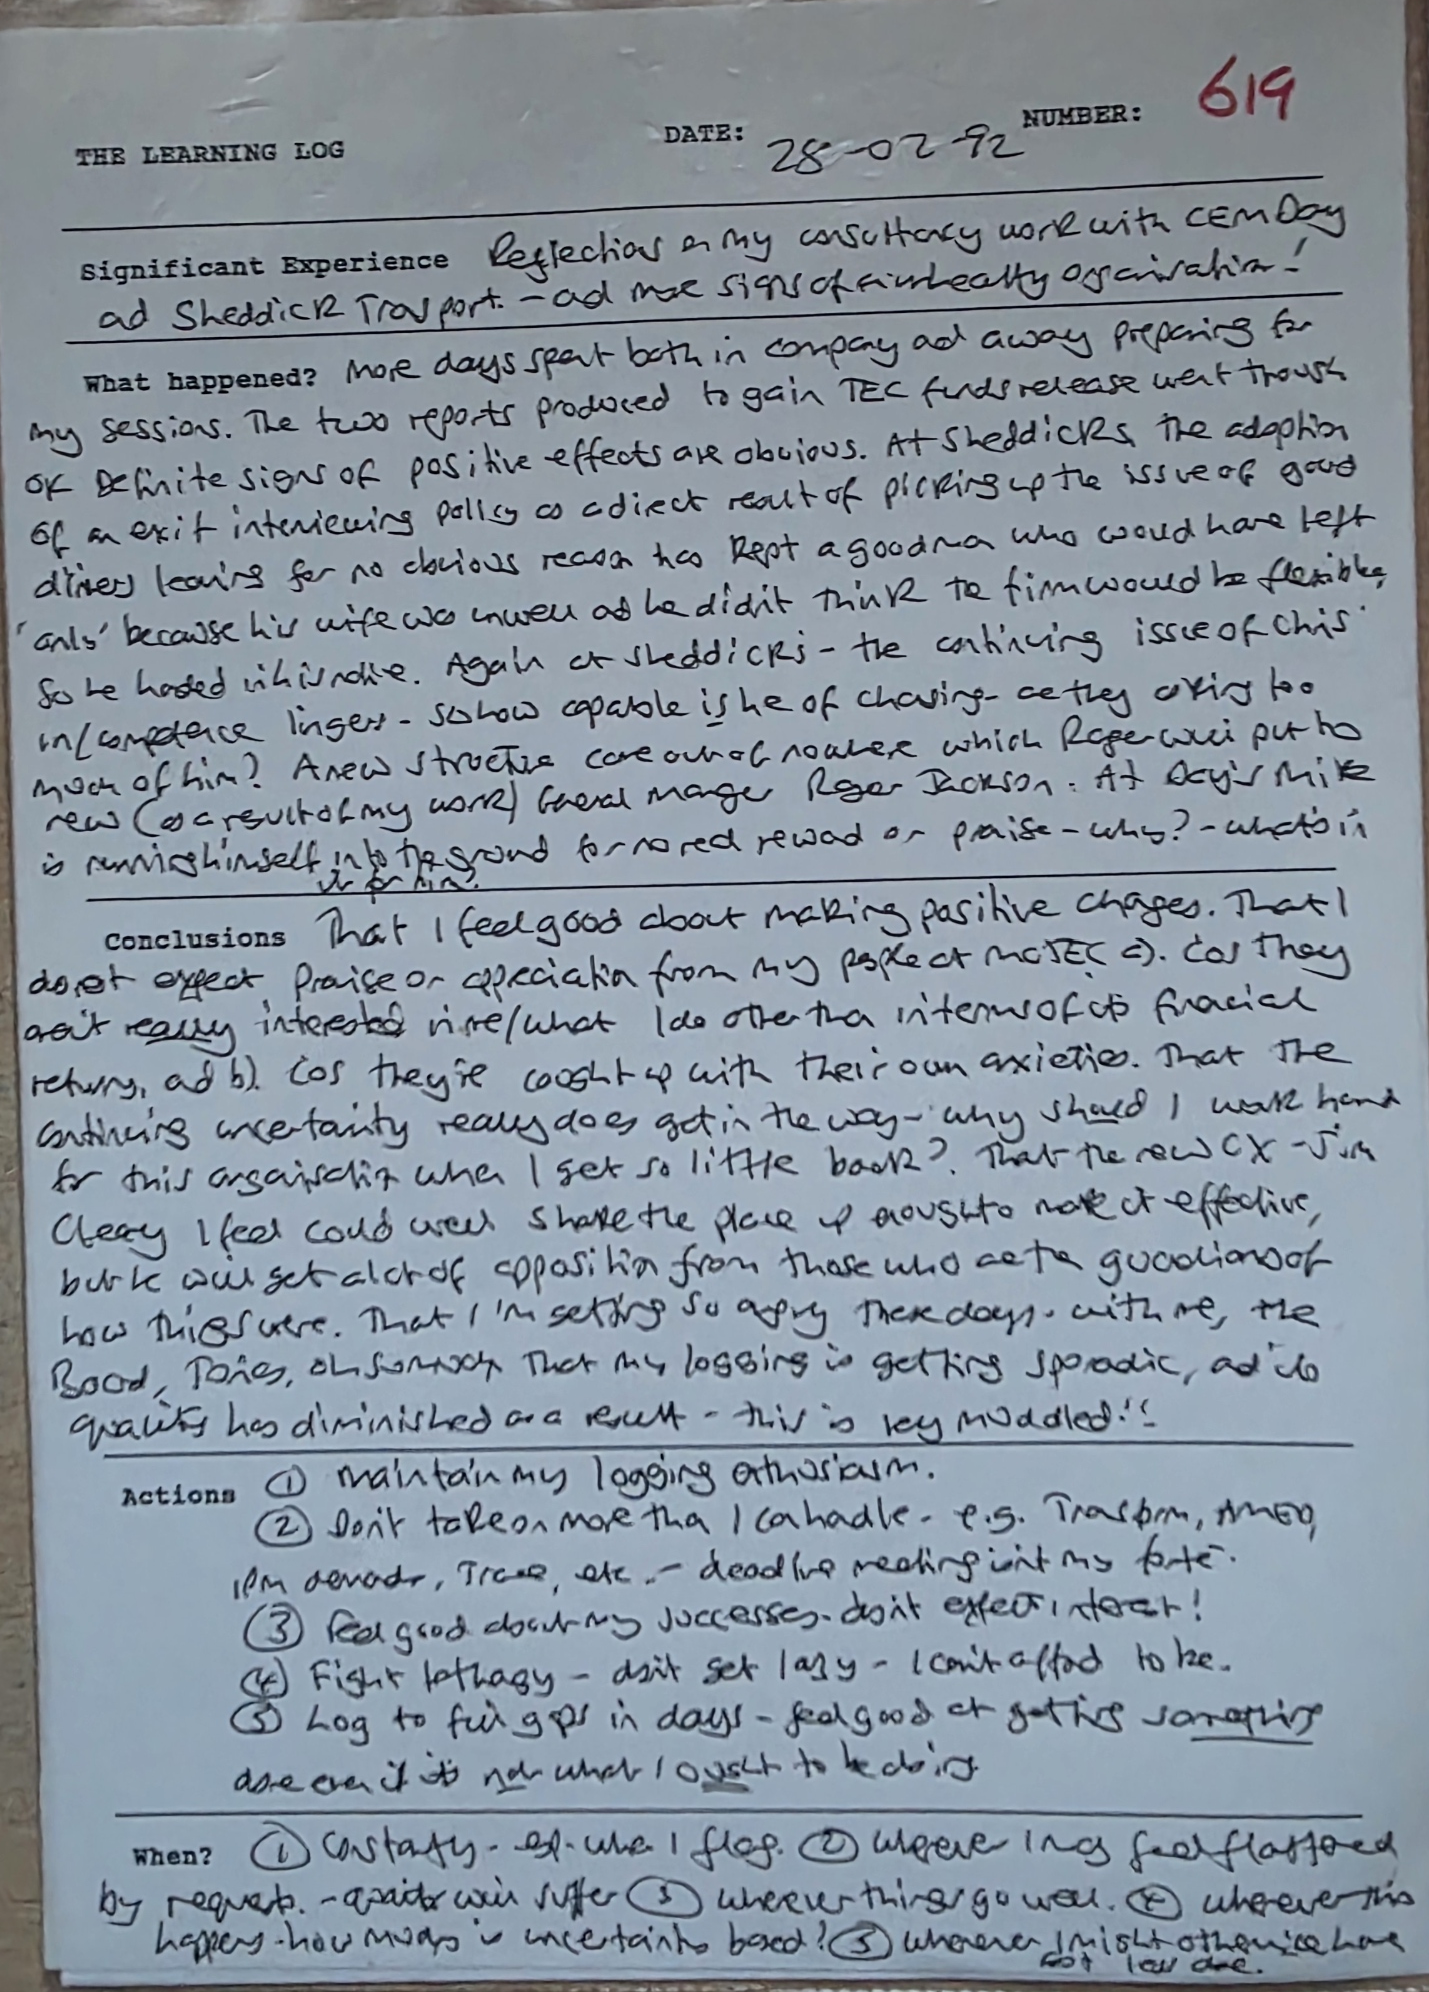 619
THE LEARNING LOG DATE: 28-02-92 NUMBER:
Significant Experience Reflections on my consultancy work with CEM Day
and Sheddick Transport. - and more signs of an unhealthy organisation!
What happened? More days spent both in company and away preparing for
my sessions. The two reports produced to gain TEC funds release went through
OK Definite signs of positive effects are obvious. At Sheddicks, the adoption
of an exit interviewing policy as a direct result of picking up the issue of good
drivers leaving for no obvious reason has kept a good man who would have left
'only' because his wife was unwell and he didn't think the firm would be flexible,
so he handed in his notice. Again at Sheddicks - the continuing issue of Chris'
in/competence lingers - so how capable is he of changing - are they asking too
much of him? A new structure came out of nowhere which Roger will put to
new (as a result of my work) General Manager Roger Jackson. At Day's Mike
is running himself into the ground for no real reward or praise - why? - what's in
it for him?
Conclusions That I feel good about making positive changes. That I
don't expect praise or appreciation from my people at TEC a). Cos they
aren't really interested in me/what I do other than in terms of financial
return, and b). Cos they're caught up with their own anxieties. That the
continuing uncertainty really does get in the way - why should I work hard
for this organisation when I get so little back?. That the new CX - Jim
Cleary I feel could well shake the place up enough to make it effective,
but he will get a lot of opposition from those who are the guardians of
how things were. That I'm getting so angry these days. with me, the
Board, Tories, oh so much. That my logging is getting sporadic, and its
quality has diminished as a result - this is very muddled!!
Actions ① Maintain my logging enthusiasm.
② Don't take on more than I can handle - e.g. Transform, AMED,
IPM, etc. - deadline meeting isn't my forté.
③ Feel good about my successes - don't expect interest!
④ Fight lethargy - don't get lazy - I can't afford to be.
⑤ Log to fill gaps in days - feel good at getting something
done even if it's not what I ought to be doing.
When? ① Constantly - esp. when I flag. ② Whenever I may feel flattered
by requests. - quality will suffer ③ Whenever things go well. ④ Whenever this
happens - how much is uncertainty based? ⑤ Whenever I might otherwise have
got less done.